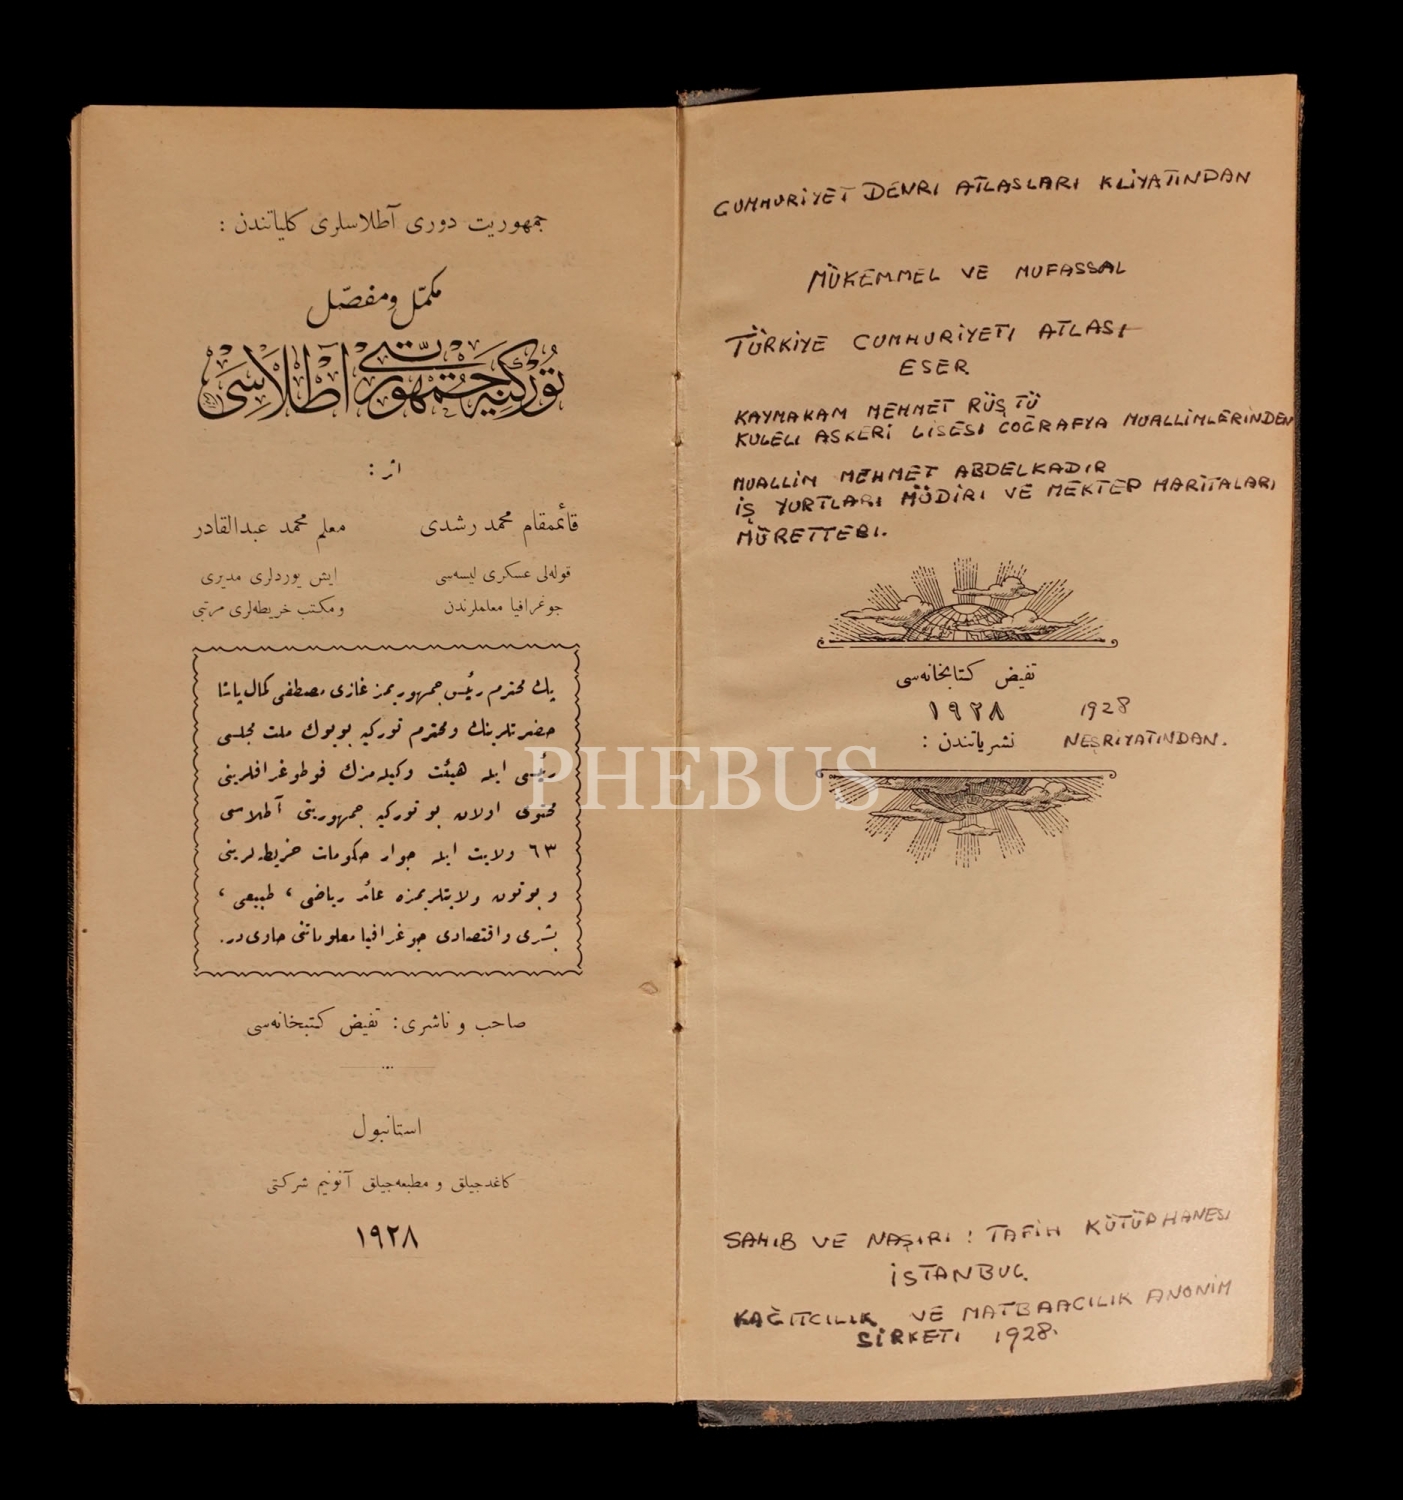 جمهوريت دورى آطلاسلرى كلياتندن :
مكمّل ومفصّل
توركيه جمهوريتى آطلاسى
اثر :
قائممقام محمد رشدى
قوله‌لى عسكرى ليسه‌سى
جوغرافيا معلملرندن
معلم محمد عبدالقادر
ايش يوردلرى مديرى
ومكتب خريطه‌لرى مرتبى
پك محترم رئيس جمهوريمز غازى مصطفى كمال پاشا
حضرتلرينك ومحترم توركيه بويوك ملت مجلسى
رئيسى ايله هيئت وكيله‌مزك فوطوغرافلرينى
محتوى اولان بو توركيه جمهوريتى آطلاسى
٦٣ ولايت ايله جوار حكومات خريطه‌لرينى
و بوتون ولايتلريمزه عائد رياضى ، طبيعى ،
بشرى واقتصادى جوغرافيا معلوماتنى حاوى در.
صاحب و ناشرى: تفيض كتبخانه‌سى
استانبول
كاغدجيلق و مطبعه‌جيلق آنونيم شركتى
١٩٢٨
CUMHURİYET DEVRI ATLASLARI KLİYATINDAN
MÜKEMMEL VE MUFASSAL
TÜRKİYE CUMHURİYETI ATLASI
ESER
KAYMAKAM MEHMET RÜŞTÜ
KULELI ASKERİ LİSESI COĞRAFYA MUALLİMLERİNDEN
MUALLİM MEHMET ABDELKADIR
İŞ YURTLARI MÜDİRI VE MEKTEP HARİTALARI
MÜRETTEBI.
تفيض كتابخانه‌سى
١٩٢٨ 1928
نشرياتندن : NEŞRIYATINDAN.
SAHIB VE NAŞIRI : TAFIH KÜTÜPHANESI
İSTANBUL.
KAĞITCILIK VE MATBAACILIK ANONİM
SİRKETI 1928.
PHEBUS